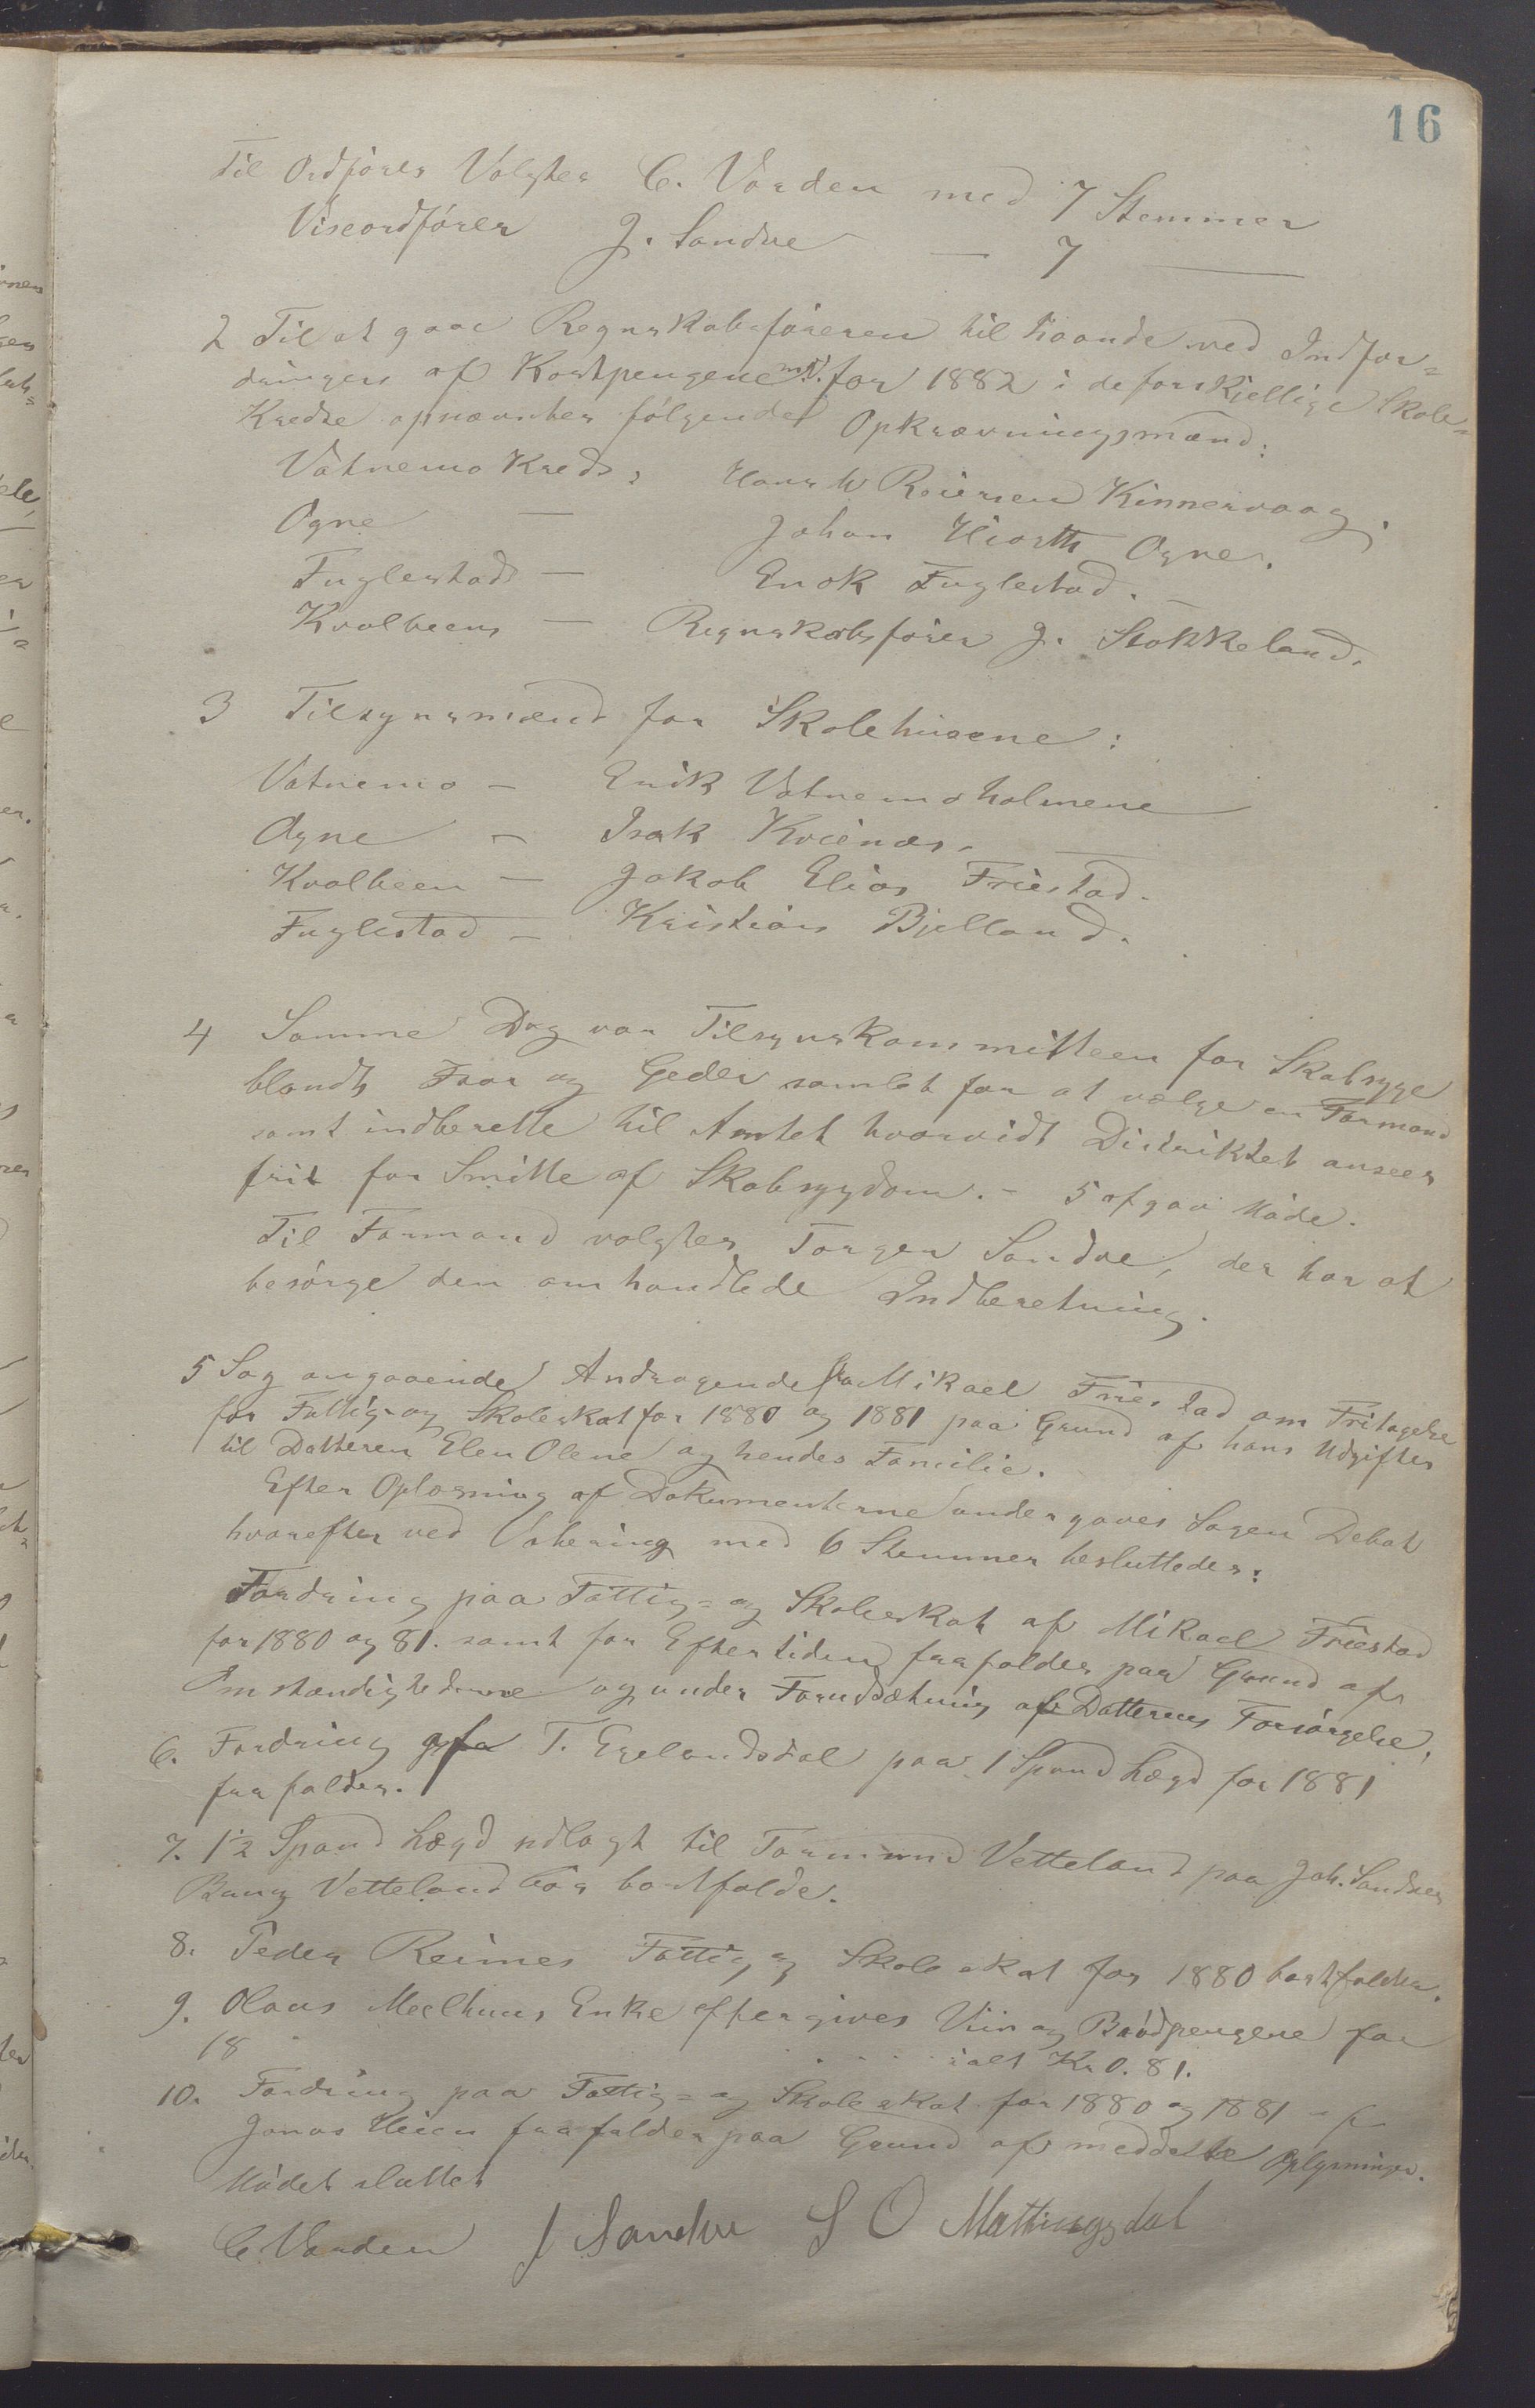 16
Til Ordfører Valgtes C. Varden med 7 Stemmer
Viseordfører J. Sandve — 7 —
2 Til at gaae Regnskabsføreren til Haande ved Indfor=
dringen af Kostpengene m.v. for 1882 i de forskjellige Skole=
Kredse opnævntes følgende Opkrævningsmænd:
Vatnemo Kreds: Hans W Reiersen Kinnervaag.
Ogne — Johan Hiorth Ogne.
Fuglestads — Enok Fuglestad. —
Kvalbeens — Regnskabsfører J. Stokkeland.
3 Tilsynsmænd for Skolehusene:
Vatnemo — Erik Vatnemoholmene
Ogne — Isak Kvienæs.
Kvalbeen — Jakob Elias Friestad.
Fuglestad — Kristian Bjelland.
4 Samme Dag var Tilsynskommitteen for Skabsyge
blandt Faar og Geder samlet for at vælge en Formand
samt indberette til Amtet hvorvidt Distriktet ansees
frit for Smitte af Skabsygdom. - 5 afgav Møde.
Til Formand valgtes Torger Sandve, der har at
besørge den omhandlede Indberetning.
5 Sag angaaende Andragende fra Mikael Friestad om Fritagelse
for Fattig- og Skoleskat for 1880 og 1881 paa Grund af hans Udgifter
til Datteren Elen Olene og hendes Familie.
Efter Oplæsning af Dokumenterne undergaves Sagen Debat
hvorefter ved Votering med 6 Stemmer besluttedes:
Fordring paa Fattig= og Skoleskat af Mikael Friestad
for 1880 og 81. samt for Eftertiden frafaldes paa Grund af
Omstændighederne og under Forudsætning af Datterens Forsørgelse.
6. Fordring fra T. Egelandsdal paa 1 Spand Lægd for 1881
frafaldes.
7. 1½ Spand Lægd udlagt til Tormund Vetteland paa Joh. Sandves
Brug Vetteland bør bortfalde.
8. Peder Reimes Fattig og Skoleskat for 1880 bortfalder.
9. Olaus Meelhuus Enke eftergives Viin og Brødpengene for
18 . . . . ialt Kr 0.81.
10. Fordring paa Fattig= og Skoleskat for 1880 og 1881
Jonas Heien frafaldes paa Grund af meddelte Oplysninger.
Mødet sluttet
C. Varden J Sandve S O Mattingsdal